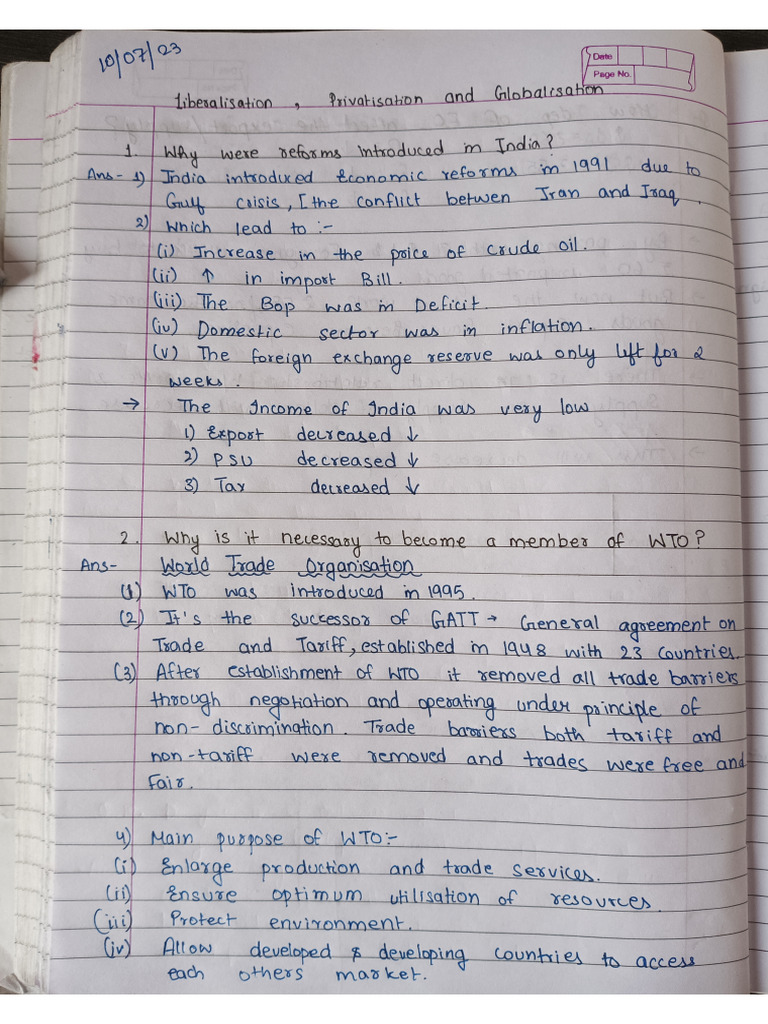 10/07/23
Date
Page No.
Liberalisation , Privatisation and Globalisation
1. Why were reforms introduced in India?
Ans- 1) India introduced Economic reforms in 1991 due to
Gulf crisis, [the conflict betwen Iran and Iraq.
2) which lead to :-
(i) Increase in the price of crude oil.
(ii) ↑ in import Bill.
(iii) The Bop was in Deficit.
(iv) Domestic sector was in inflation.
(v) The foreign exchange reserve was only left for 2
weeks.
→ The Income of India was very low
1) Export decreased ↓
2) PSU decreased ↓
3) Tax decreased ↓
2. Why is it necessary to become a member of WTO?
Ans- World Trade Organisation
(1) WTO was introduced in 1995.
(2) It's the successor of GATT → General agreement on
Trade and Tariff, established in 1948 with 23 countries.
(3) After establishment of WTO it removed all trade barriers
through negotiation and operating under principle of
non-discrimination. Trade barriers both tariff and
non-tariff were removed and trades were free and
Fair.
4) Main purpose of WTO:-
(i) Enlarge production and trade services.
(ii) Ensure optimum utilisation of resources.
(iii) Protect environment.
(iv) Allow developed & developing countries to access
each others market.